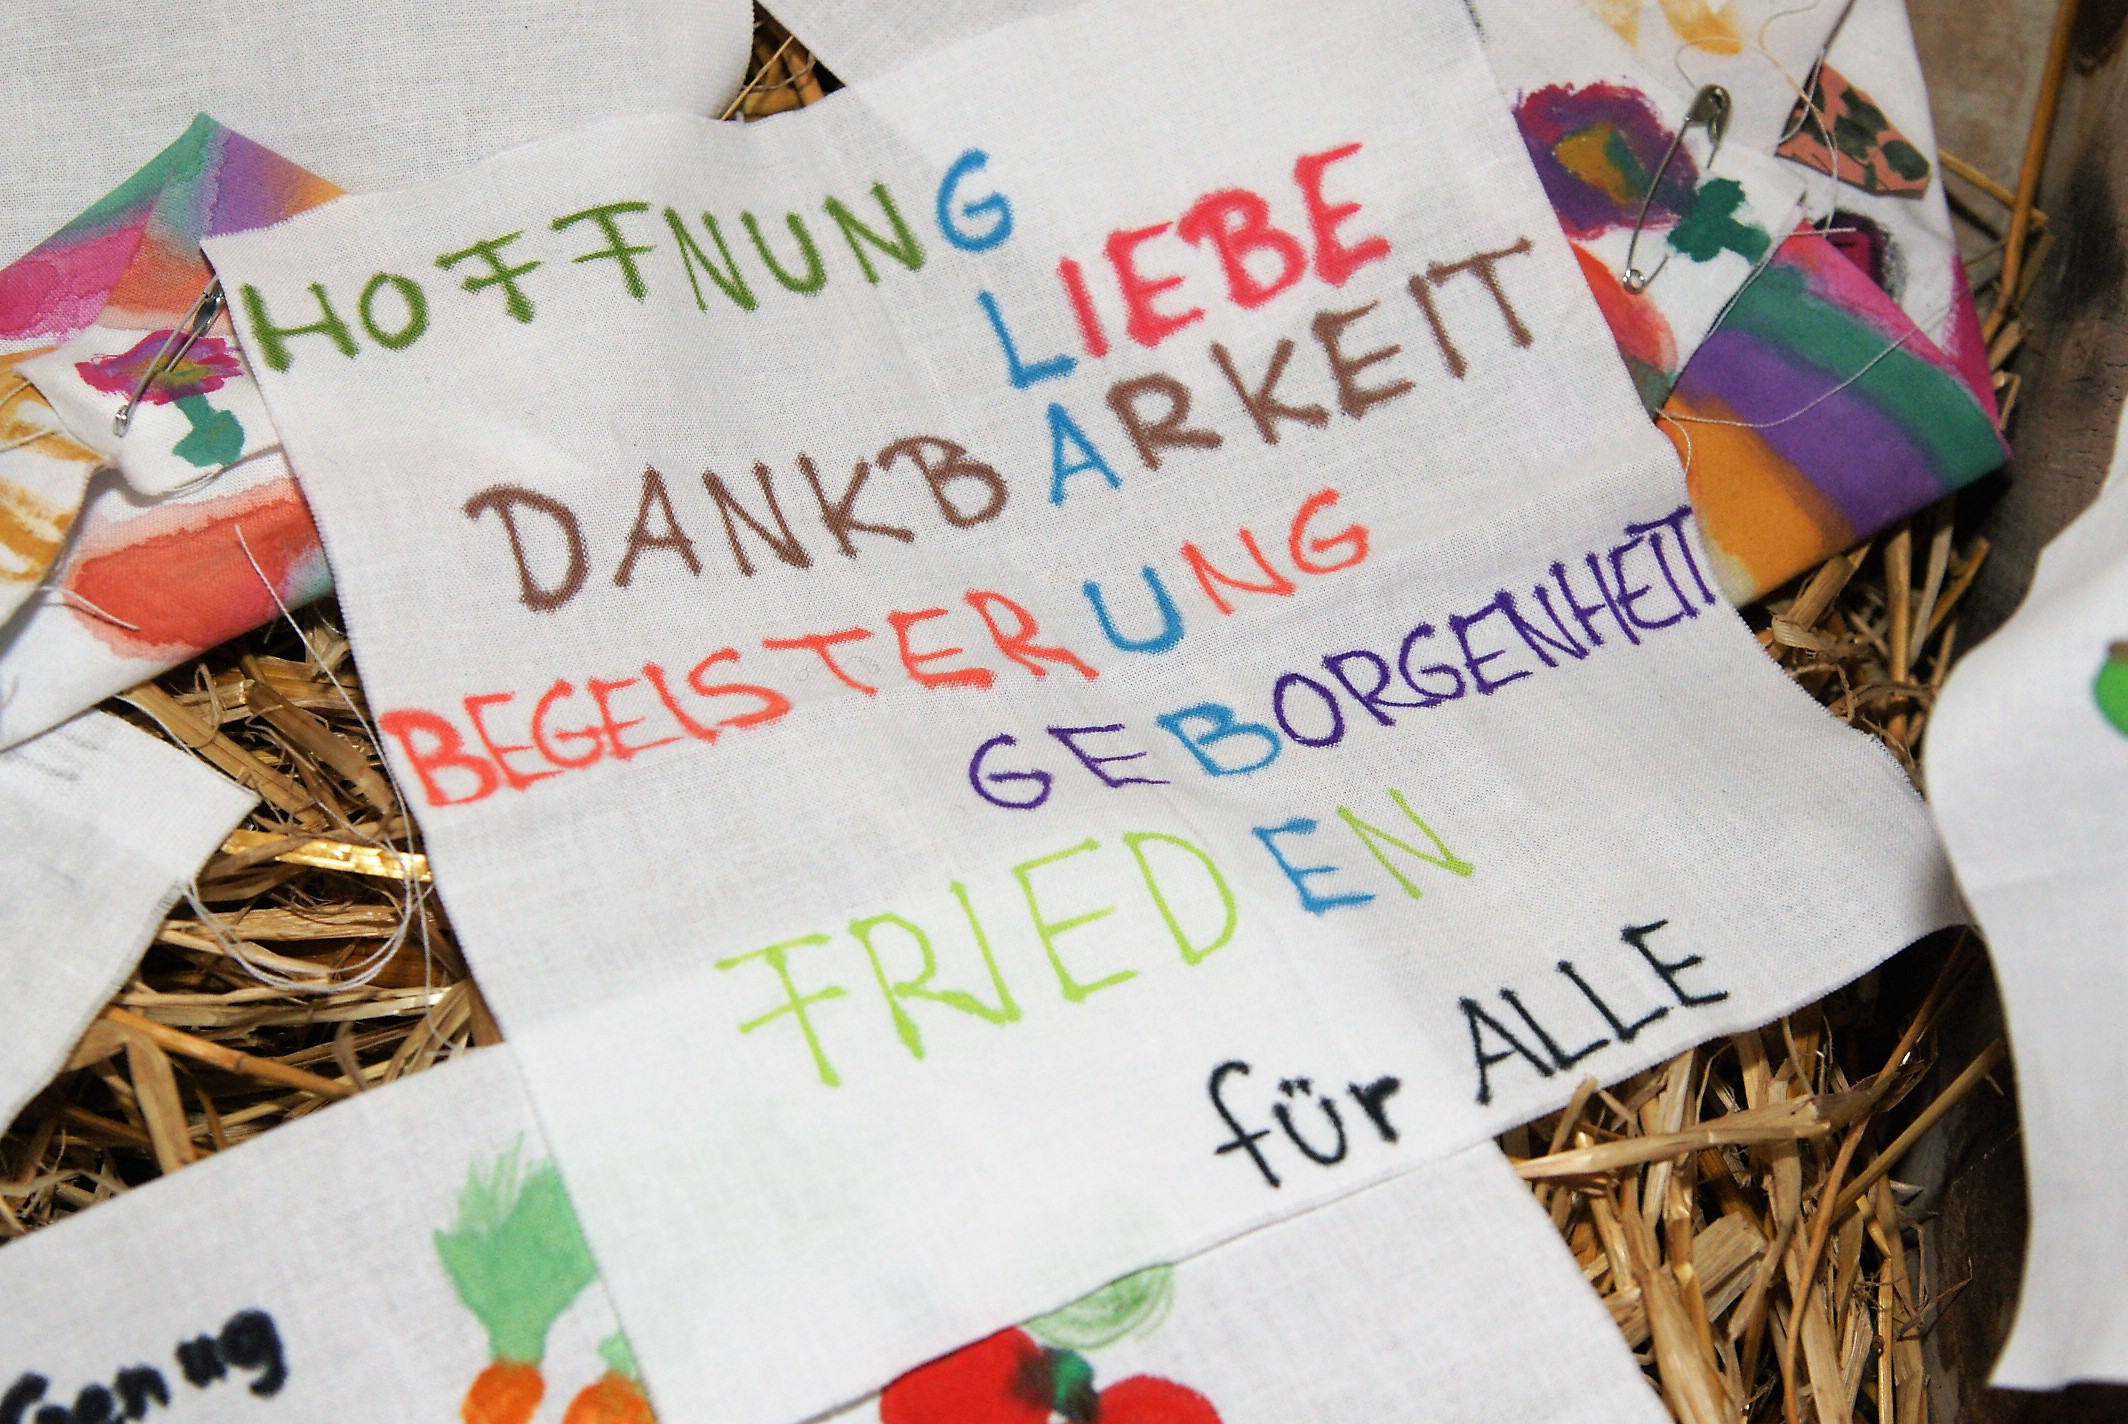 HOFFNUNG
LIEBE
DANKBARKEIT
BEGEISTERUNG
GEBORGENHEIT
FRIEDEN
für ALLE